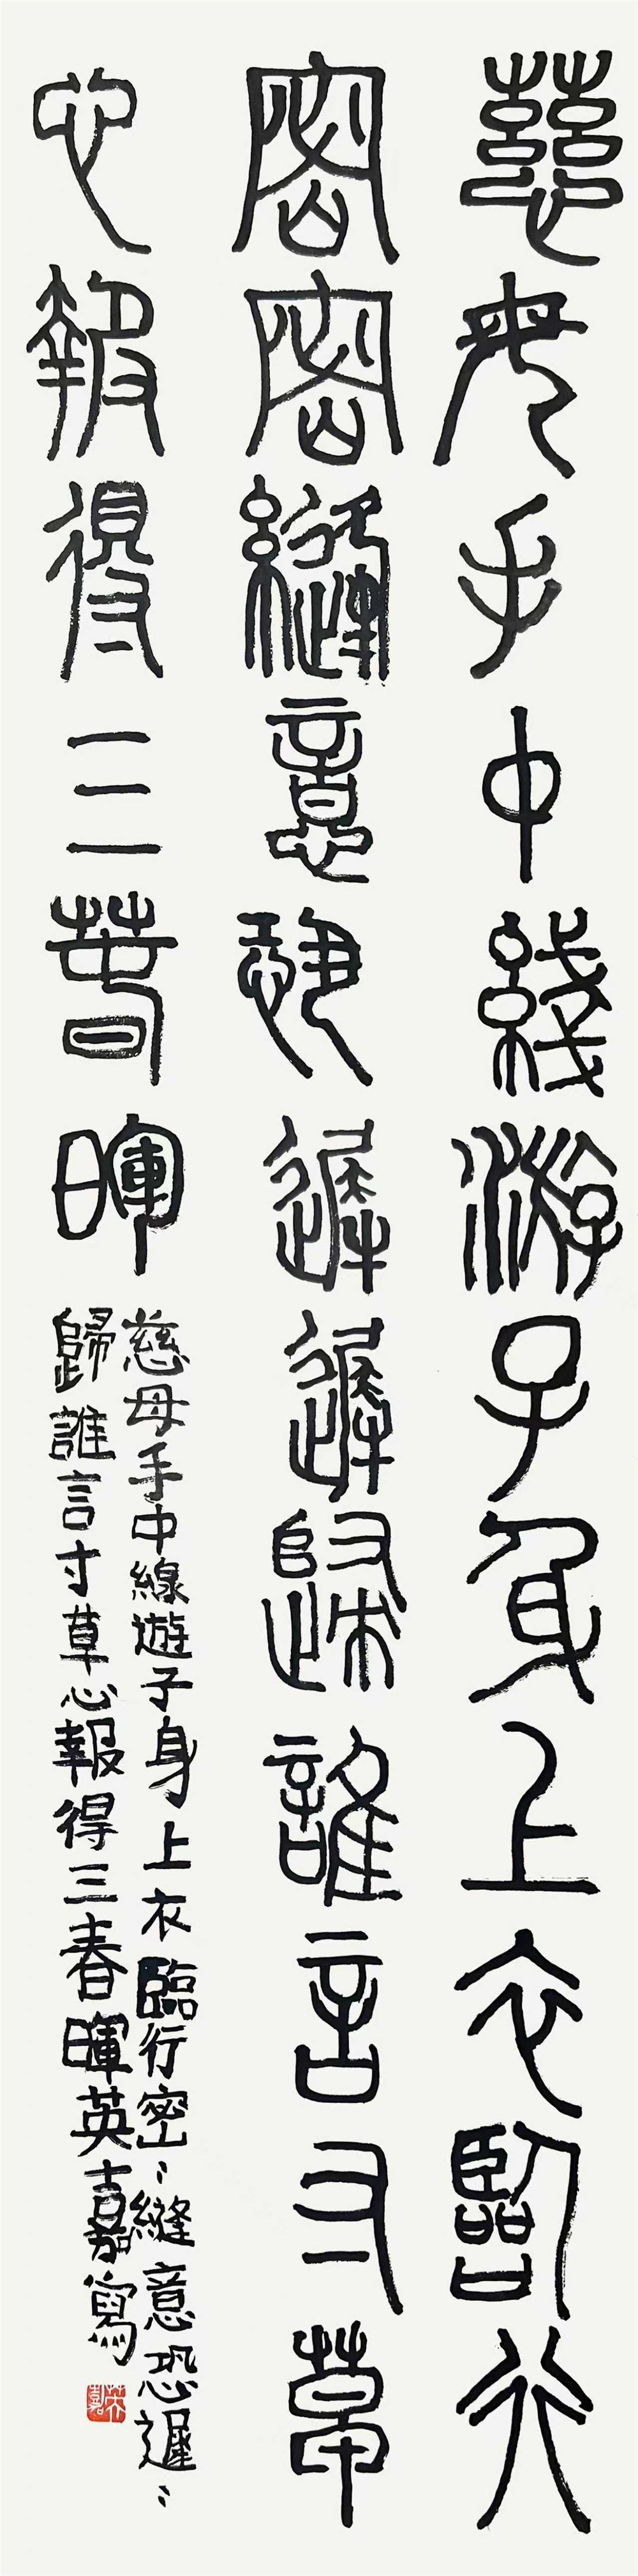 慈母手中綫游子身上衣臨行
密密縫意恐遲遲歸誰言寸草
心報得三春暉
慈母手中線遊子身上衣臨行密〻縫意恐遲〻
歸誰言寸草心報得三春暉英嘉寫
英嘉